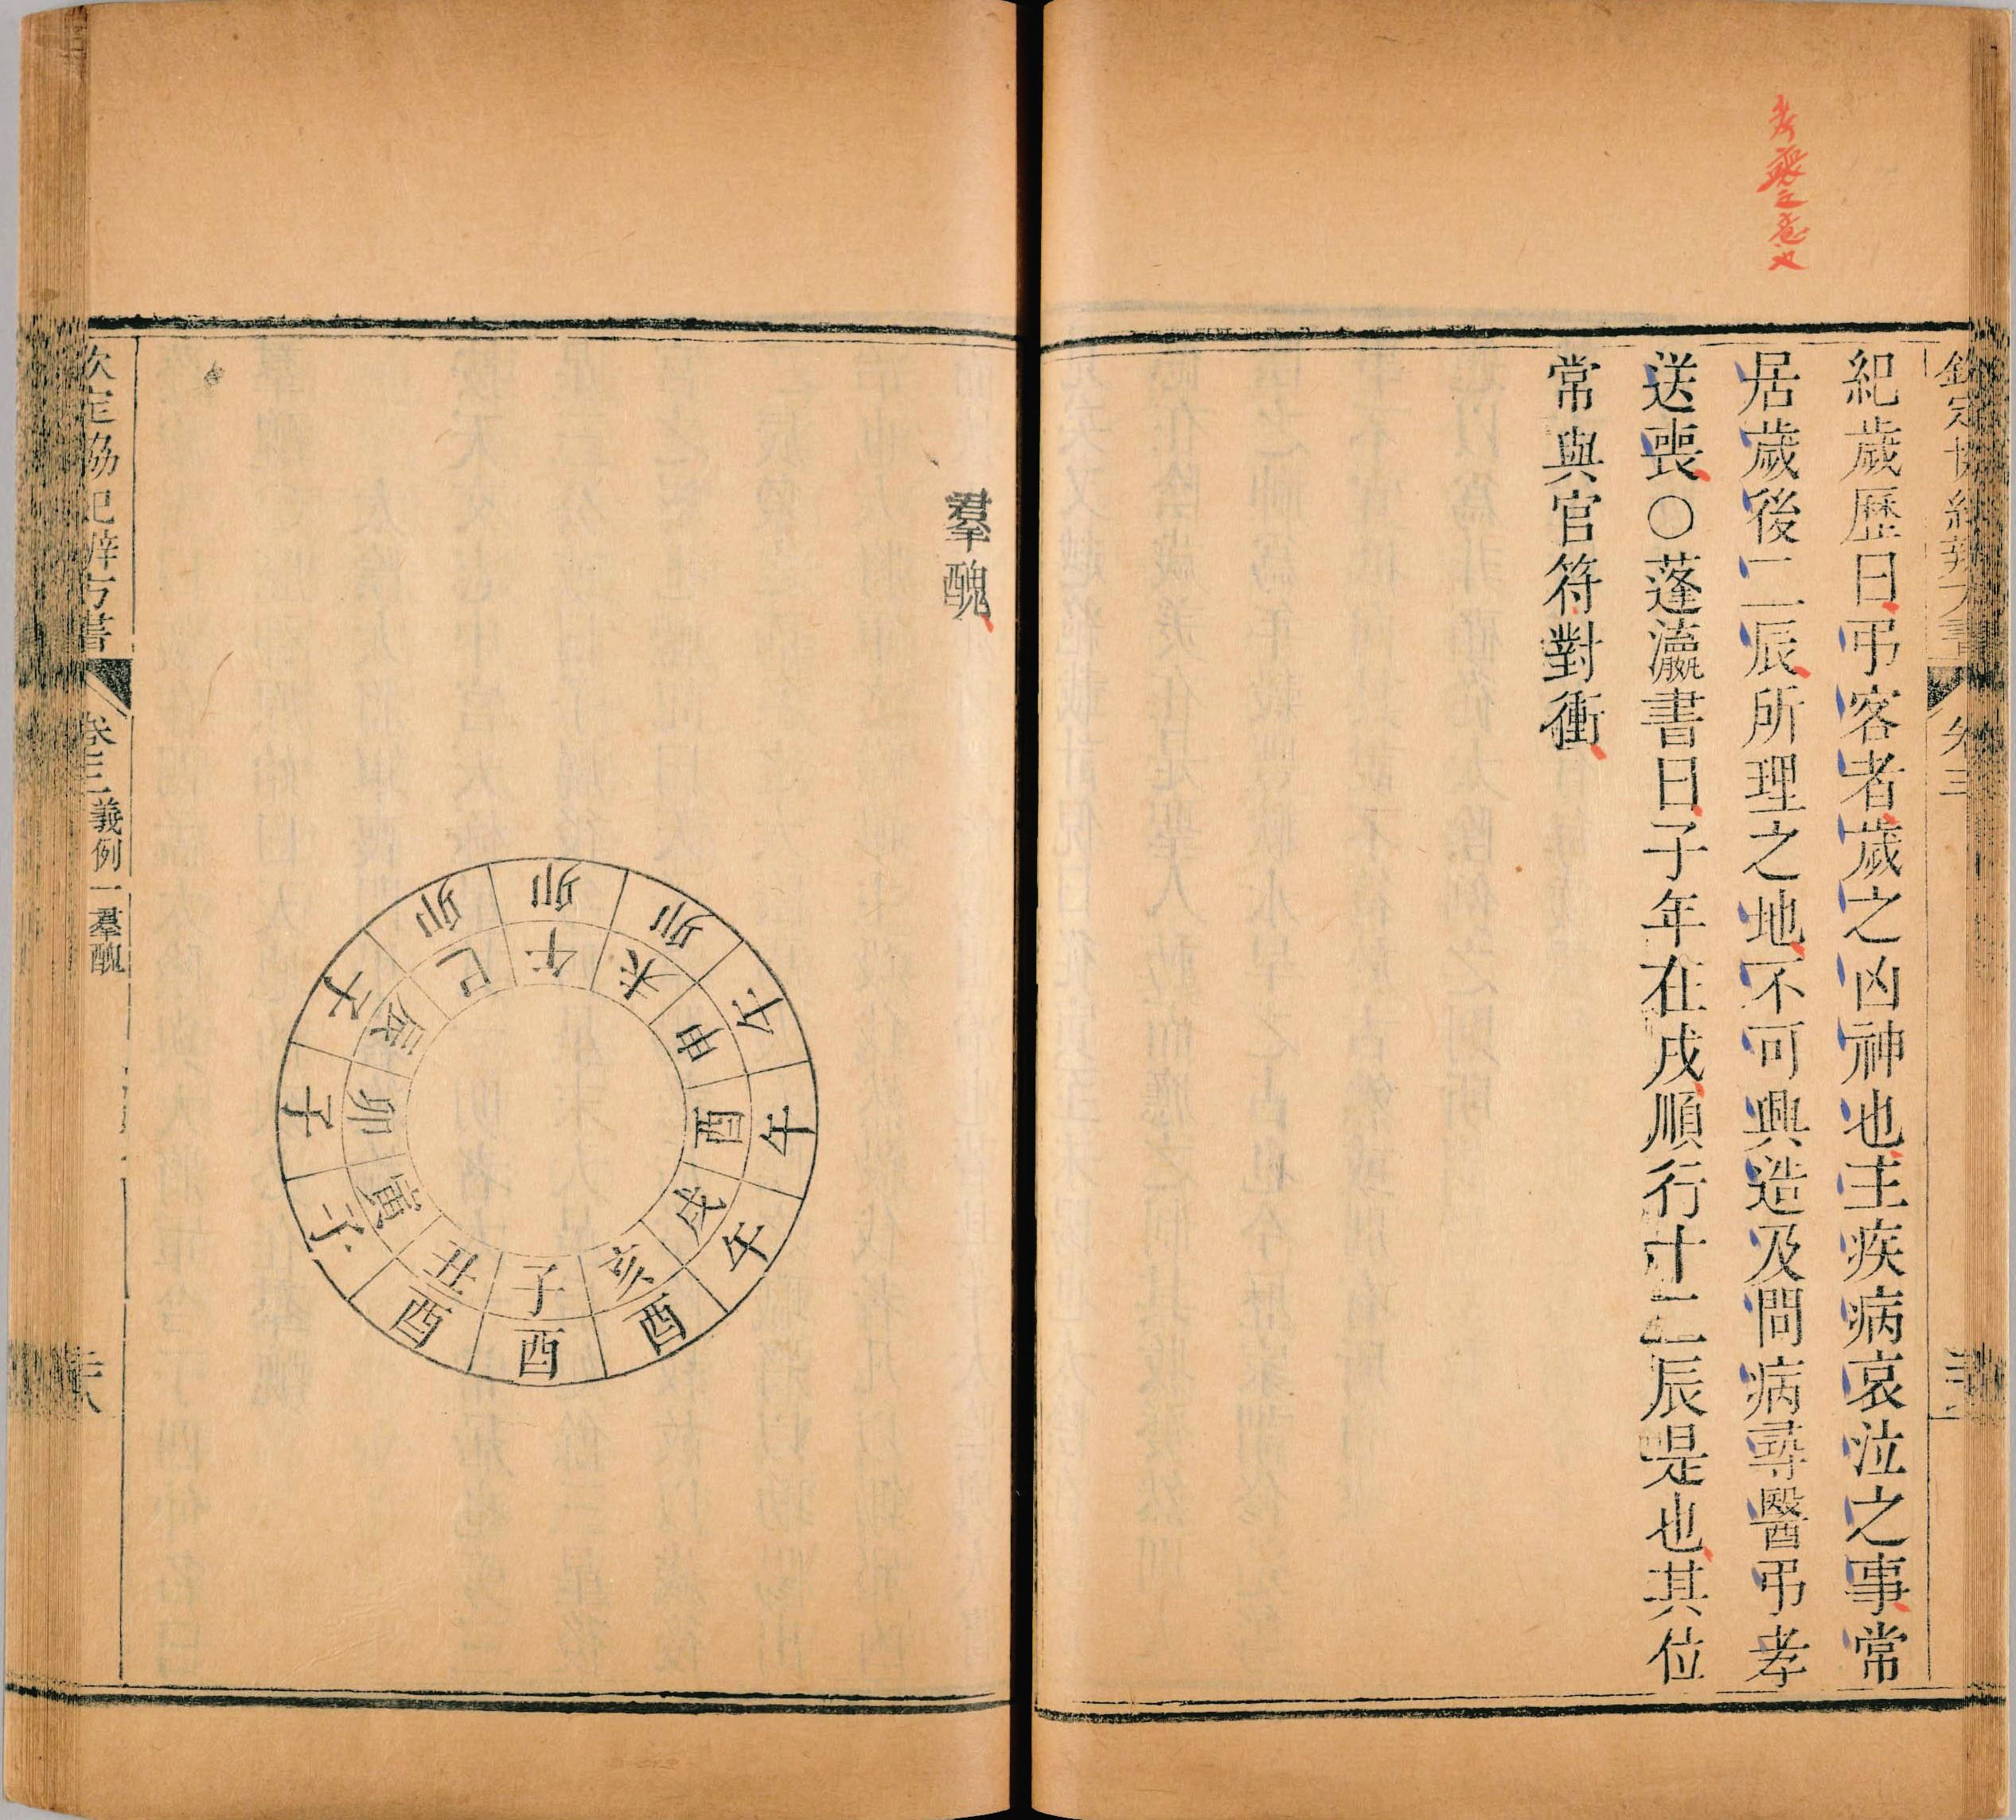 紀歲歷曰弔客者歲之凶神也主疾病哀泣之事常
居歲後二辰所理之地不可興造及問病尋醫弔孝
送喪○蓬瀛書曰子年在戌順行十二辰是也其位
常與官符對衝
羣醜
卯 卯 卯 午 午 午 酉 酉 酉 子 子 子
巳 午 未 申 酉 戌 亥 子 丑 寅 卯 辰
欽定協紀辨方書 卷三 義例一羣醜